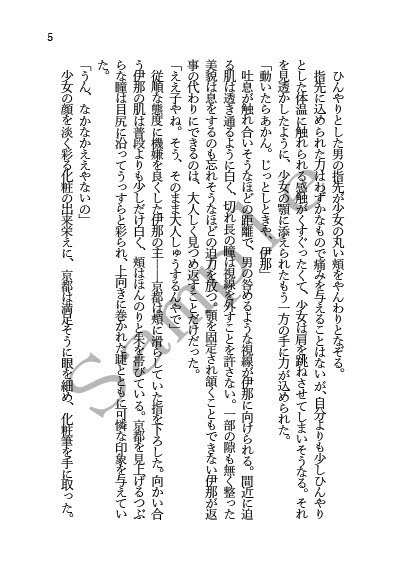 5
ひんやりとした男の指先が少女の丸い頬をやんわりとなぞる。
指先に込められた力はわずかなもので痛みを与えることはないが、自分よりも少しひんやり
とした体温に触れられる感触がくすぐったくて、少女は肩を跳ねさせてしまいそうなる。それ
を見透かしたように、少女の顎に添えられたもう一方の手に力が込められた。
「動いたらあかん。じっとしときや、伊那」
吐息が触れ合いそうなほどの距離で、男の咎めるような視線が伊那に向けられる。間近に迫
る肌は透き通るように白く、切れ長の瞳は視線を外すことを許さない。一部の隙も無く整った
美貌は息をするのも忘れそうなほどの迫力を放つ。顎を固定され頷くこともできない伊那が返
事の代わりにできるのは、大人しく見つめ返すことだけだった。
「ええ子やね。そう、そのまま大人しゅうするんやで」
従順な態度に機嫌を良くした伊那の主――京都は頬に滑らしていた指を下ろした。向かい合
う伊那の肌は普段よりも少しだけ白く、頬はほんのりと朱を帯びている。京都を見上げるつぶ
らな瞳は目尻に沿ってうっすらと彩られ、上向きに巻かれた睫とともに可憐な印象を与えてい
た。
「うん、なかなかええやないの」
少女の顔を淡く彩る化粧の出来栄えに、京都は満足そうに眼を細め、化粧筆を手に取った。
Sample